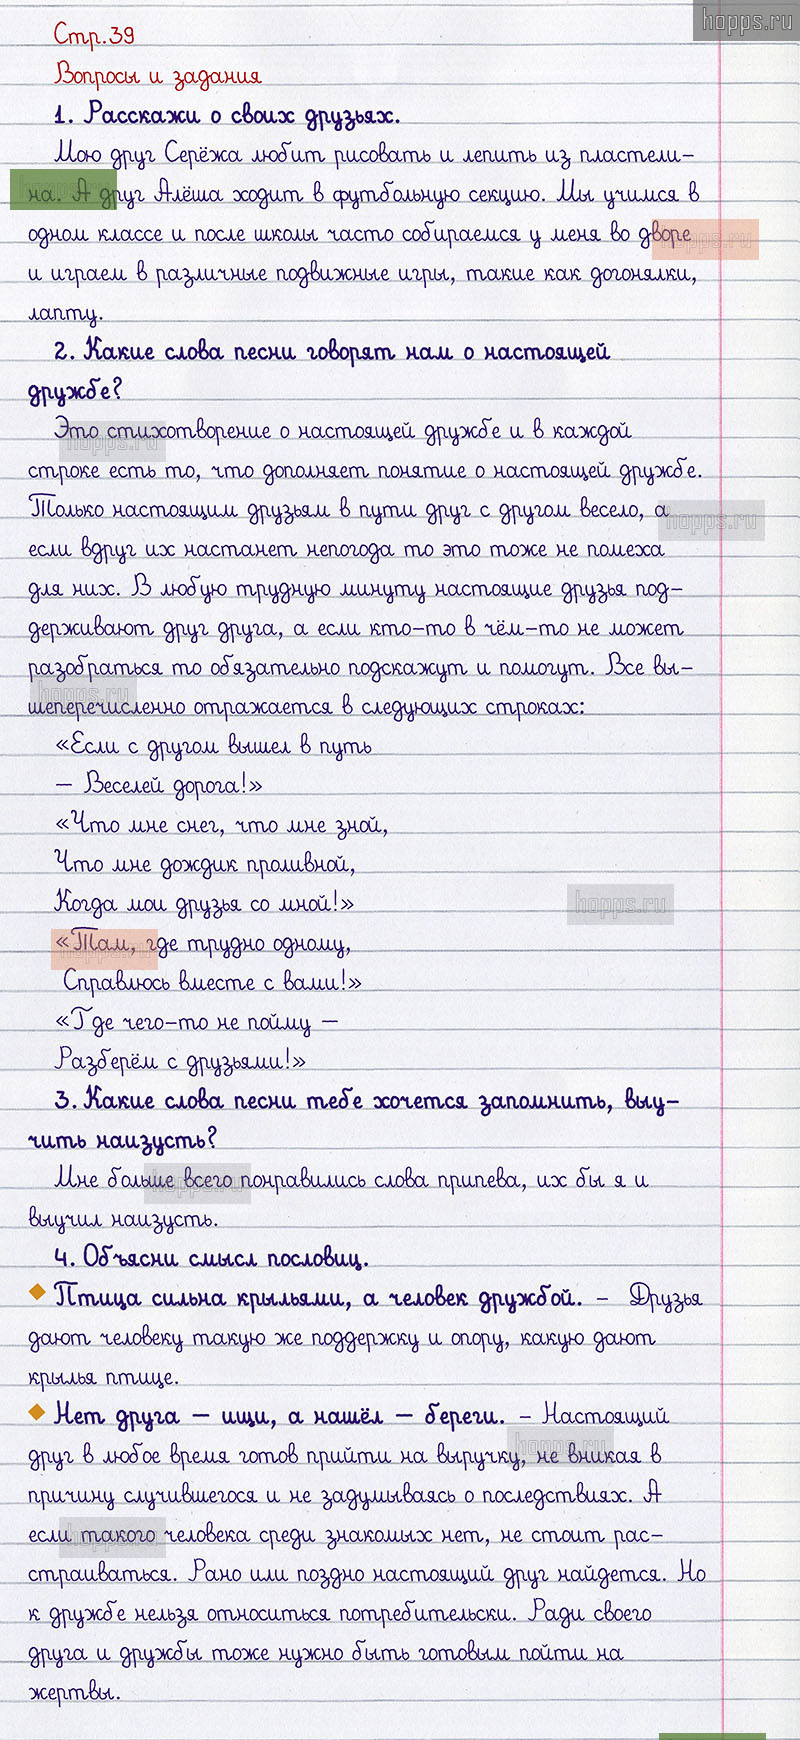 hopps.ru
Стр.39
Вопросы и задания
1. Расскажи о своих друзьях.
Мою друг Серёжа любит рисовать и лепить из пластели-
на. А друг Алёша ходит в футбольную секцию. Мы учимся в
одном классе и после школы часто собираемся у меня во дворе
и играем в различные подвижные игры, такие как догонялки,
лапту.
2. Какие слова песни говорят нам о настоящей
дружбе?
Это стихотворение о настоящей дружбе и в каждой
строке есть то, что дополняет понятие о настоящей дружбе.
Только настоящим друзьям в пути друг с другом весело, а
если вдруг их настанет непогода то это тоже не помеха
для них. В любую трудную минуту настоящие друзья под-
держивают друг друга, а если кто-то в чём-то не может
разобраться то обязательно подскажут и помогут. Все вы-
шеперечисленно отражается в следующих строках:
«Если с другом вышел в путь
– Веселей дорога!»
«Что мне снег, что мне зной,
Что мне дождик проливной,
Когда мои друзья со мной!»
«Там, где трудно одному,
Справлюсь вместе с вами!»
«Где чего-то не пойму –
Разберём с друзьями!»
3. Какие слова песни тебе хочется запомнить, выу-
чить наизусть?
Мне больше всего понравились слова припева, их бы я и
выучил наизусть.
4. Объясни смысл пословиц.
Птица сильна крыльями, а человек дружбой. – Друзья
дают человеку такую же поддержку и опору, какую дают
крылья птице.
Нет друга – ищи, а нашёл – береги. – Настоящий
друг в любое время готов прийти на выручку, не вникая в
причину случившегося и не задумываясь о последствиях. А
если такого человека среди знакомых нет, не стоит рас-
страиваться. Рано или поздно настоящий друг найдется. Но
к дружбе нельзя относиться потребительски. Ради своего
друга и дружбы тоже нужно быть готовым пойти на
жертвы.